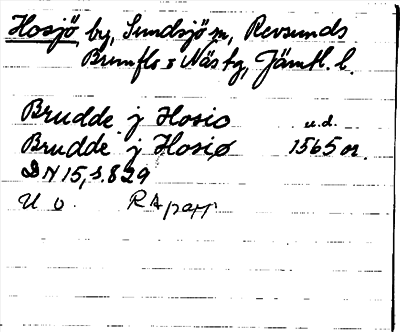 Hosjö by, Sundsjö sn, Revsunds
Brunflo o Näs tg, Jämtl. l.
Brudde j Hosio u.d.
Brudde j Hosiø 1565 or.
DN 15, s. 829
U o. RA papp